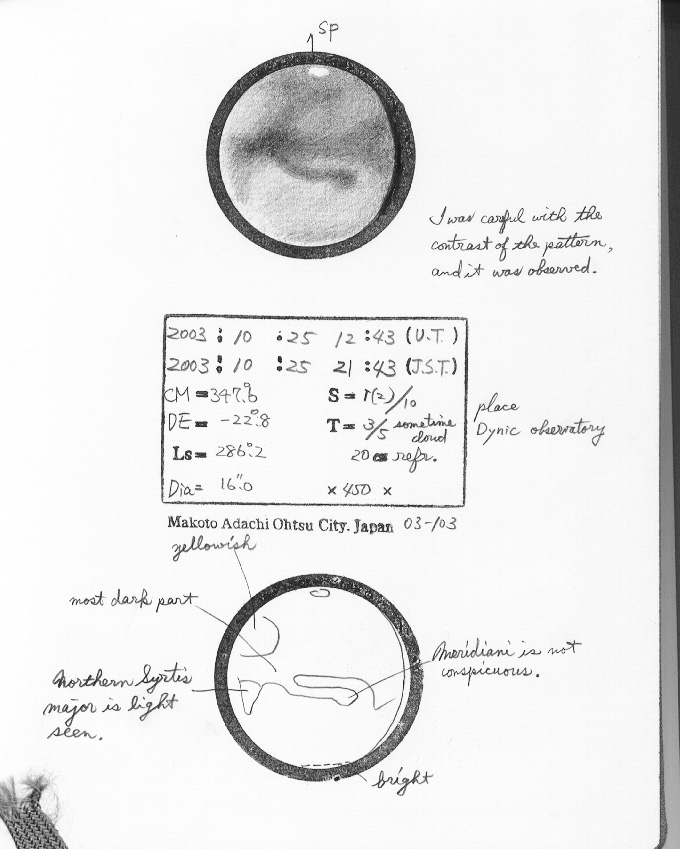 SP
I was careful with the
contrast of the pattern,
and it was observed.
2003 : 10 : 25 12 : 43 (U.T.)
2003 : 10 : 25 21 : 43 (J.S.T.)
CM = 347.°6
S = 1(2)/10
DE = -22.°8
T = 3/5 sometime
cloud
Ls = 286.°2
20 cm refr.
Dia = 16.″0
× 450 ×
place
Dynic observatory
Makoto Adachi Ohtsu City. Japan 03-103
yellowish
most dark part
Meridiani is not
conspicuous.
Northern Syrtis
major is light
seen.
bright